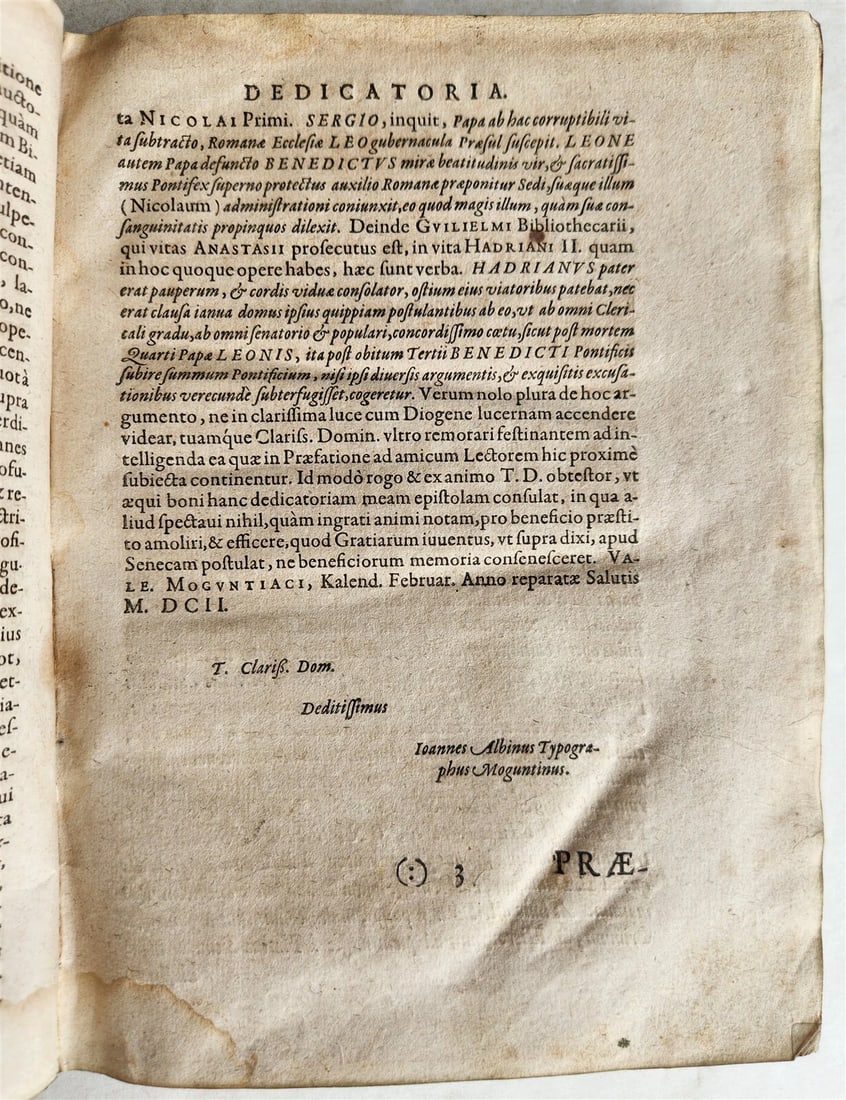 tione
ucto-
quàm
m Bi-
etiam
nten-
ulpe-
con-
con-
, la-
o,ne
ope-
cen-
notà
upra
rdi-
anes
ofu-
re-
ctri-
ofi-
gu-
de-
ex-
ius
ot,
et-
ia-
es-
e-
a-
ui
ra
DEDICATORIA.
ta NICOLAI Primi. SERGIO, inquit, Papa ab hac corruptibili vi-
ta ſubtracto, Romanæ Eccleſiæ LEO gubernacula Præſul ſuſcepit. LEONE
autem Papa defuncto BENEDICTVS miræ beatitudinis vir, & ſacratiſſi-
mus Pontifex ſuperno protectus auxilio Romanæ præponitur Sedi, ſuæque illum
(Nicolaum) adminiſtrationi coniunxit, eo quod magis illum, quàm ſuæ con-
ſanguinitatis propinquos dilexit. Deinde GVILIELMI Bibliothecarii,
qui vitas ANASTASII proſecutus eſt, in vita HADRIANI II. quam
in hoc quoque opere habes, hæc ſunt verba. HADRIANVS pater
erat pauperum, & cordis viduæ conſolator, oſtium eius viatoribus patebat, nec
erat clauſa ianua domus ipſius quippiam poſtulantibus ab eo, vt ab omni Cleri-
cali gradu, ab omni ſenatorio & populari, concordiſſimo cœtu, ſicut poſt mortem
Quarti Papæ LEONIS, ita poſt obitum Tertii BENEDICTI Pontificis
ſubire ſummum Pontificium, niſi ipſi diuerſis argumentis, & exquiſitis excuſa-
tionibus verecundè ſubterfugiſſet, cogeretur. Verum nolo plura de hoc ar-
gumento, ne in clariſſima luce cum Diogene lucernam accendere
videar, tuamq́ue Clariſs. Domin. vltro remorari feſtinantem ad in-
telligenda ea quæ in Præfatione ad amicum Lectorem hic proximè
ſubiecta continentur. Id modò rogo & ex animo T. D. obteſtor, vt
æqui boni hanc dedicatoriam meam epiſtolam conſulat, in qua a-
liud ſpectaui nihil, quàm ingrati animi notam, pro beneficio præſti-
to amoliri, & efficere, quod Gratiarum iuuentus, vt ſupra dixi, apud
Senecam poſtulat, ne beneficiorum memoria conſeneſceret. VA-
LE. MOGVNTIACI, Kalend. Februar. Anno reparatæ Salutis
M. DCII.
T. Clariß. Dom.
Deditiſſimus
Ioannes Albinus Typogra-
phus Moguntinus.
(:) 3 PRÆ-